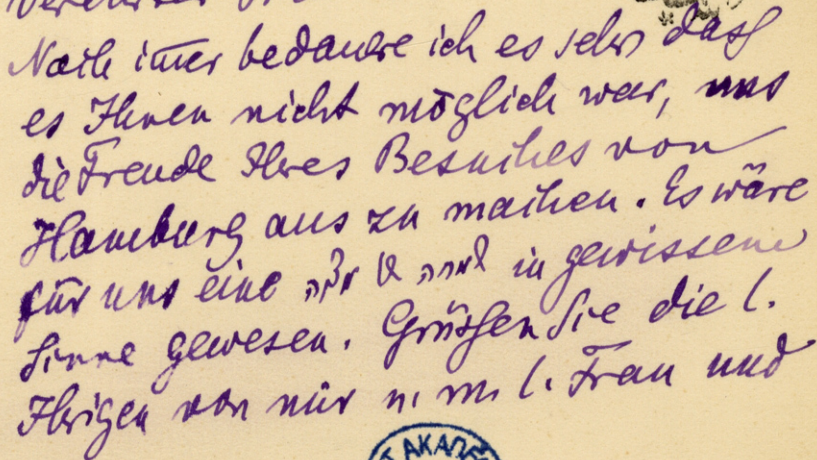 Verehrter
Noch im̄er bedauere ich es sehr daß
es Ihnen nicht möglich war, uns
die Freude Ihres Besuches von
Hamburg aus zu machen. Es wäre
für uns eine שמחה של מצוה in gewissem
Sinne gewesen. Grüßen Sie die l.
Ihrigen von mir u. m. l. Frau und